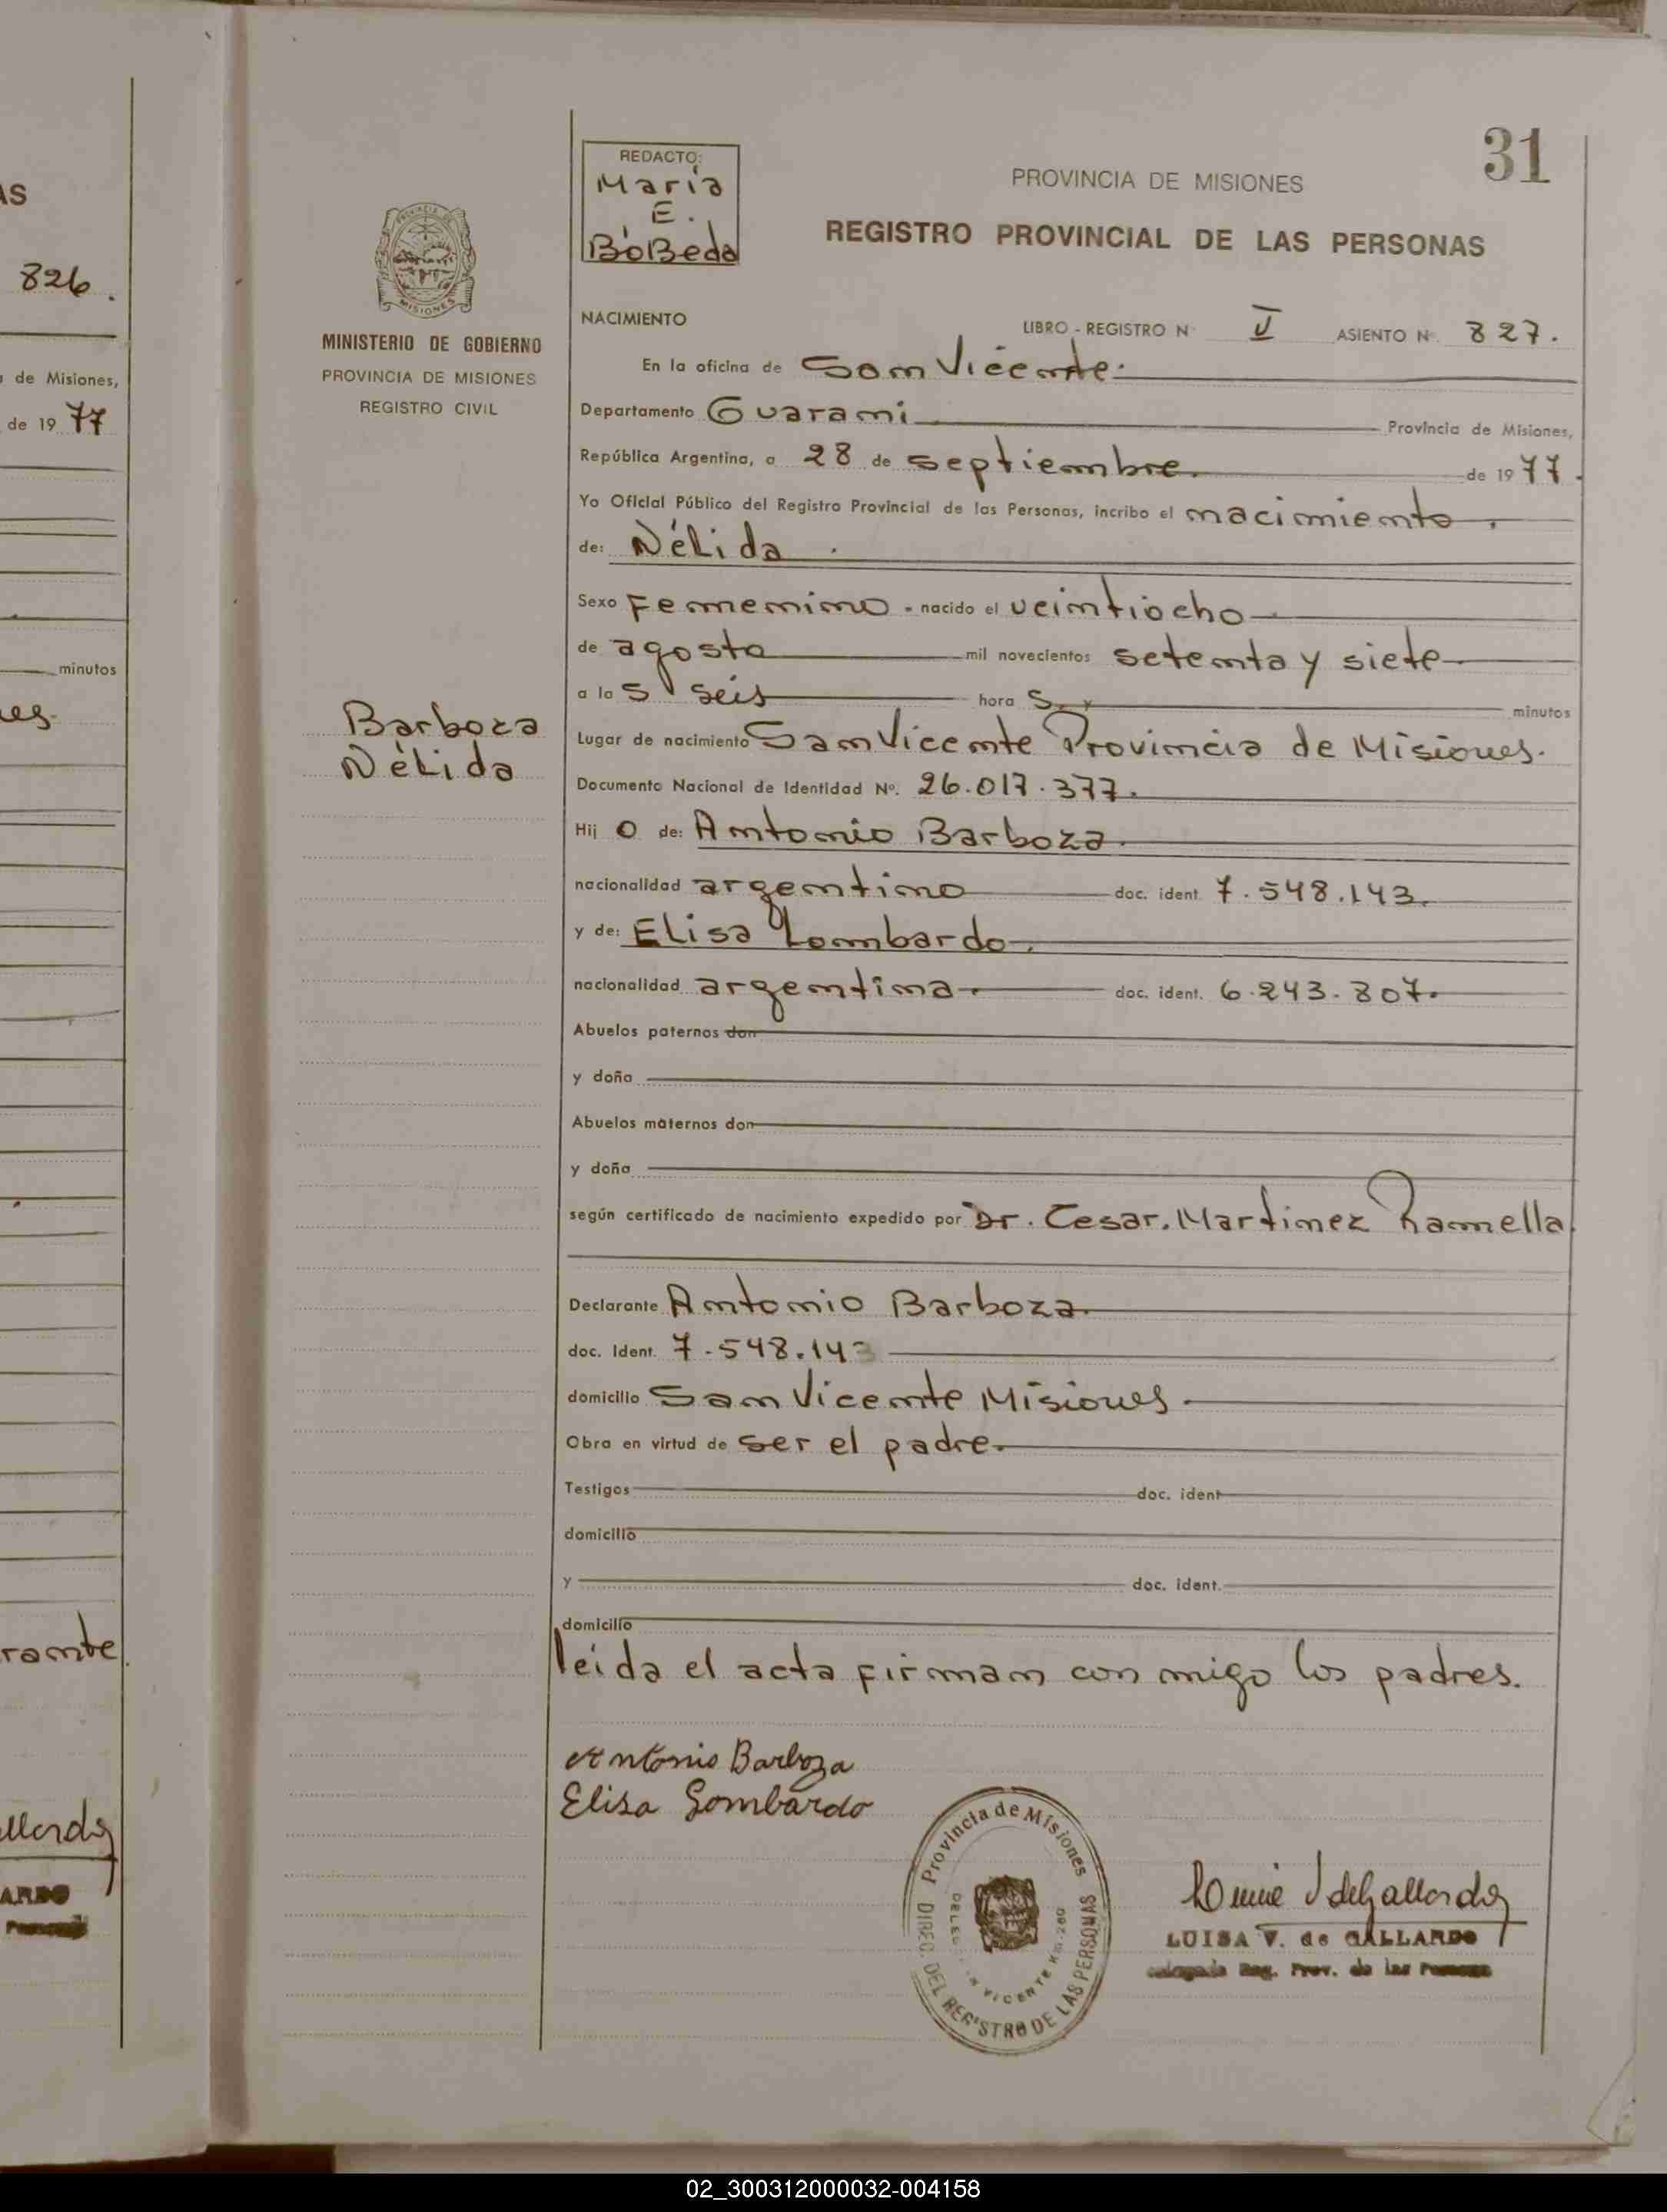 AS
826.
de Misiones,
de 19 77
minutos
es.
rante.
allardo
ARDO
31
REDACTO:
María
E.
BóBeda
PROVINCIA DE MISIONES
REGISTRO PROVINCIAL DE LAS PERSONAS
PROVINCIA DE
MISIONES
MINISTERIO DE GOBIERNO
PROVINCIA DE MISIONES
REGISTRO CIVIL
NACIMIENTO
LIBRO - REGISTRO N II ASIENTO N 827.
En la oficina de San Vicente.
Departamento Guaraní Provincia de Misiones,
República Argentina, a 28 de septiembre. de 1977.
Yo Oficial Público del Registro Provincial de las Personas, incribo el nacimiento.
de: Nélida.
Sexo Femenino - nacido el veintiocho
de agosto mil novecientos setenta y siete
a las seis horas, y minutos
Barboza
Nélida
Lugar de nacimiento San Vicente Provincia de Misiones.
Documento Nacional de Identidad Nº. 26.017.377.
Hijo de: Antonio Barboza.
nacionalidad argentino doc. ident. 7.548.143.
y de: Elisa Lombardo.
nacionalidad argentina. doc. ident. 6.243.807.
Abuelos paternos don
y doña
Abuelos maternos don
y doña
según certificado de nacimiento expedido por Dr. Cesar. Martinez Ramella.
Declarante Antonio Barboza.
doc. Ident. 7.548.143
domicilio San Vicente Misiones.
Obra en virtud de ser el padre.
Testigos doc. ident
domicilio
y doc. ident.
domicilio
leída el acta firman con migo los padres.
Antonio Barboza
Elisa Lombardo
Provincia de Misiones
DIREC. DEL REGISTRO DE LAS PERSONAS
VICENTE KM. 260
LUISA V. de GALLARDO
Delegada Reg. Prov. de las Personas
02_300312000032-004158